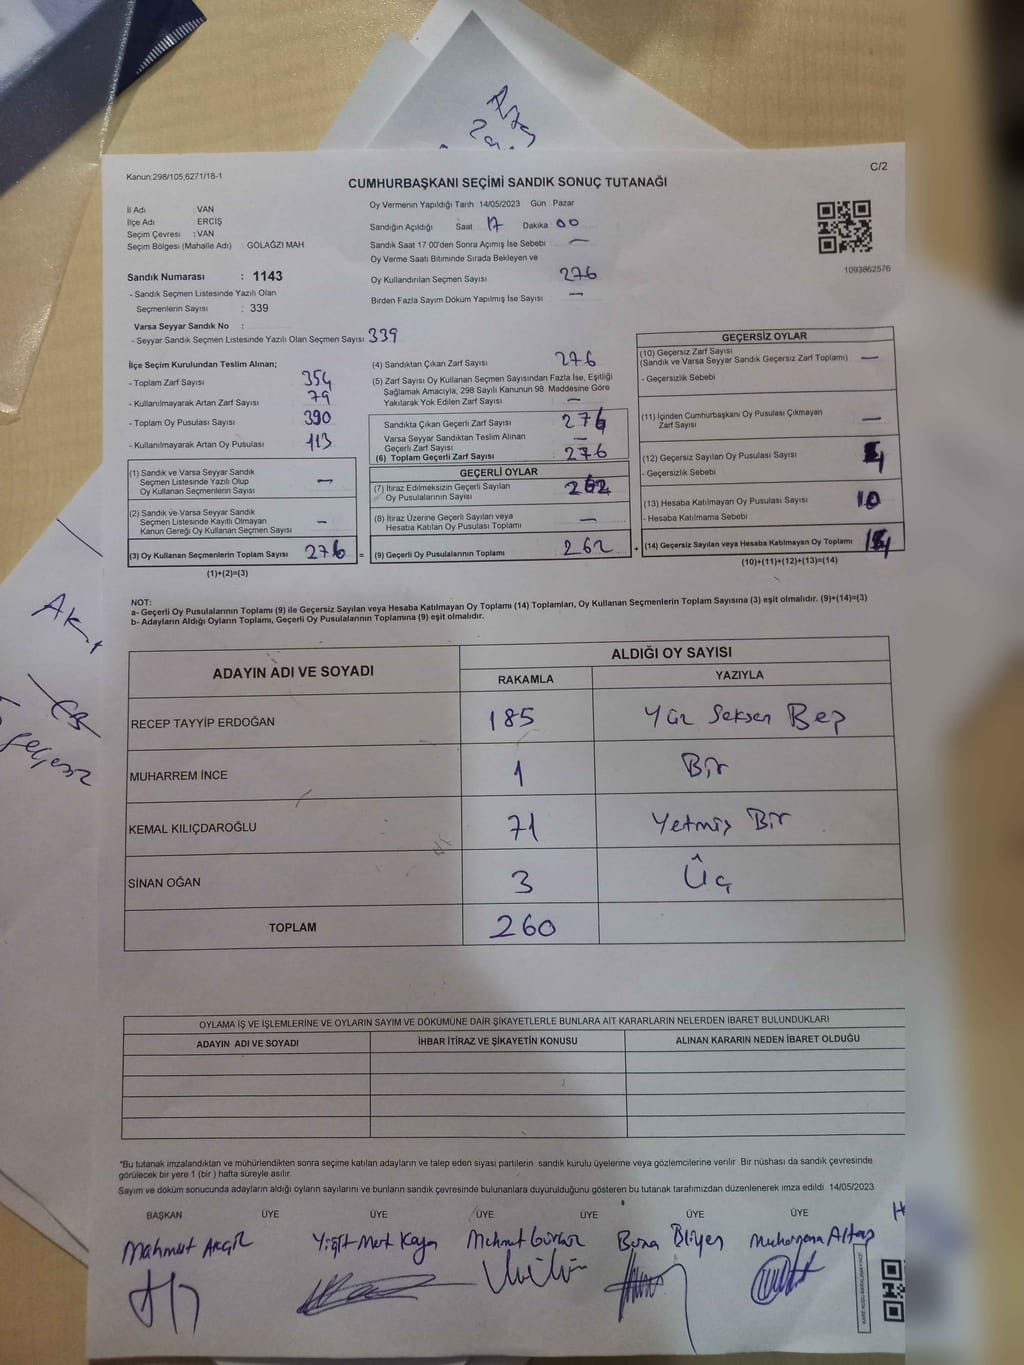 Kanun:298/105,6271/18-1
C/2
CUMHURBAŞKANI SEÇİMİ SANDIK SONUÇ TUTANAĞI
İl Adı : VAN
İlçe Adı : ERCİŞ
Seçim Çevresi : VAN
Seçim Bölgesi (Mahalle Adı) : GÖLAĞZI MAH
Sandık Numarası : 1143
- Sandık Seçmen Listesinde Yazılı Olan
Seçmenlerin Sayısı : 339
Varsa Seyyar Sandık No :
- Seyyar Sandık Seçmen Listesinde Yazılı Olan Seçmen Sayısı: 339
Oy Vermenin Yapıldığı Tarih 14/05/2023 Gün Pazar
Sandığın Açıldığı Saat 17 Dakika 00
Sandık Saat 17 00'den Sonra Açımış İse Sebebi —
Oy Verme Saati Bitiminde Sırada Bekleyen ve
Oy Kullandırılan Seçmen Sayısı 276
Birden Fazla Sayım Döküm Yapılmış İse Sayısı —
1093862576
İlçe Seçim Kurulundan Teslim Alınan;
- Toplam Zarf Sayısı 354
- Kullanılmayarak Artan Zarf Sayısı 79
- Toplam Oy Pusulası Sayısı 390
- Kullanılmayarak Artan Oy Pusulası 113
(1) Sandık ve Varsa Seyyar Sandık
Seçmen Listesinde Yazılı Olup
Oy Kullanan Seçmenlerin Sayısı —
(2) Sandık ve Varsa Seyyar Sandık
Seçmen Listesinde Kayıtlı Olmayan
Kanun Gereği Oy Kullanan Seçmen Sayısı —
(3) Oy Kullanan Seçmenlerin Toplam Sayısı 276 =
(1)+(2)=(3)
(4) Sandıktan Çıkan Zarf Sayısı 276
(5) Zarf Sayısı Oy Kullanan Seçmen Sayısından Fazla İse, Eşitliği
Sağlamak Amacıyla, 298 Sayılı Kanunun 98. Maddesine Göre
Yakılarak Yok Edilen Zarf Sayısı —
Sandıkta Çıkan Geçerli Zarf Sayısı 276
Varsa Seyyar Sandıktan Teslim Alınan
Geçerli Zarf Sayısı —
(6) Toplam Geçerli Zarf Sayısı 276
GEÇERLİ OYLAR
(7) İtiraz Edilmeksizin Geçerli Sayılan
Oy Pusulalarının Sayısı 262
(8) İtiraz Üzerine Geçerli Sayılan veya
Hesaba Katılan Oy Pusulası Toplamı —
(9) Geçerli Oy Pusulalarının Toplamı 262 +
GEÇERSİZ OYLAR
(10) Geçersiz Zarf Sayısı
(Sandık ve Varsa Seyyar Sandık Geçersiz Zarf Toplamı) —
- Geçersizlik Sebebi
(11) İçinden Cumhurbaşkanı Oy Pusulası Çıkmayan
Zarf Sayısı —
(12) Geçersiz Sayılan Oy Pusulası Sayısı
- Geçersizlik Sebebi
(13) Hesaba Katılmayan Oy Pusulası Sayısı 10
- Hesaba Katılmama Sebebi
(14) Geçersiz Sayılan veya Hesaba Katılmayan Oy Toplamı
(10)+(11)+(12)+(13)=(14)
NOT:
a- Geçerli Oy Pusulalarının Toplamı (9) ile Geçersiz Sayılan veya Hesaba Katılmayan Oy Toplamı (14) Toplamları, Oy Kullanan Seçmenlerin Toplam Sayısına (3) eşit olmalıdır. (9)+(14)=(3)
b- Adayların Aldığı Oyların Toplamı, Geçerli Oy Pusulalarının Toplamına (9) eşit olmalıdır.
ADAYIN ADI VE SOYADI ALDIĞI OY SAYISI
RAKAMLA YAZIYLA
RECEP TAYYİP ERDOĞAN 185 Yüz Seksen Beş
MUHARREM İNCE 1 Bir
KEMAL KILIÇDAROĞLU 71 Yetmiş Bir
SİNAN OĞAN 3 Üç
TOPLAM 260
OYLAMA İŞ VE İŞLEMLERİNE VE OYLARIN SAYIM VE DÖKÜMÜNE DAİR ŞİKAYETLERLE BUNLARA AİT KARARLARIN NELERDEN İBARET BULUNDUKLARI
ADAYIN ADI VE SOYADI İHBAR İTİRAZ VE ŞİKAYETİN KONUSU ALINAN KARARIN NEDEN İBARET OLDUĞU
*Bu tutanak imzalandıktan ve mühürlendikten sonra seçime katılan adayların ve talep eden siyasi partilerin sandık kurulu üyelerine ve gözlemcilerine verilir Bir nüshası da sandık çevresinde
görülecek bir yere 1 (bir ) hafta süreyle asılır.
Sayım ve döküm sonucunda adayların aldığı oyların sayılarını ve bunların sandık çevresinde bulunanlara duyurulduğunu gösteren bu tutanak tarafımızdan düzenlenerek imza edildi 14/05/2023
BAŞKAN ÜYE ÜYE ÜYE ÜYE ÜYE ÜYE
Mahmut Yiğit Mert Kaya Mehmet Gürbüz